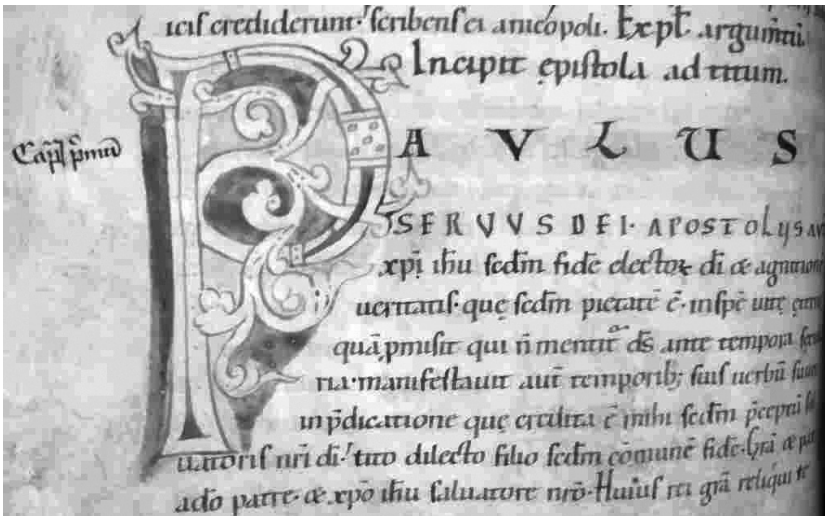 icis crediderunt. scribens ei anicópoli. Expł argum̅ti
Incipit ępistola ad titum.
Capł p̅mu̅
PAVLUS
SERVVS DEI. APOSTOLUS AU
xp̅i ih̅u scd̅m fide̅ electoꝝ di̅ & agnitione
ueritatis. quę scd̅m pietate̅ e̅. in spe̅ uitę
qua̅ p̱misit qui n̅ mentit᷑ d̅s ante tempora
ria. manifestauit aut̅ temporib; suis uerbu̅ suum
in p̅dicatione que credita e̅ mihi scd̅m p̅ceptu̅
uatoris nr̅i di̅. tito dilecto filio scd̅m co̅mune̅ fide̅. Gra̅ & pax
a do̅ patre. & xp̅o ih̅u saluatore nr̅o. Huius rei gra̅ reliqui te